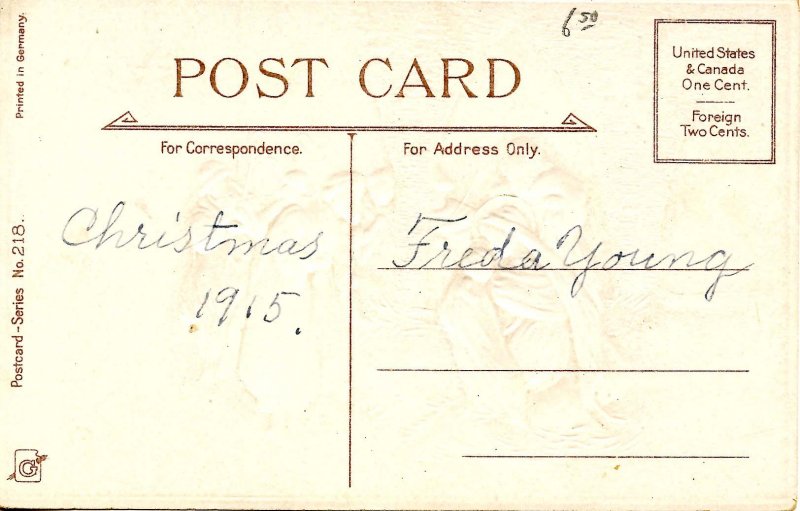 6 50
Printed in Germany.
POST CARD
United States
& Canada
One Cent.
Foreign
Two Cents.
For Correspondence.
For Address Only.
Christmas
1915.
Freda Young
Postcard-Series No. 218.
G